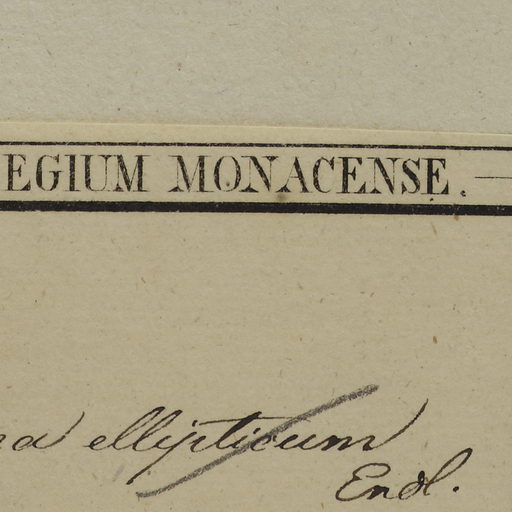 EGIUM MONACENSE.
ra ellipticum
Endl.